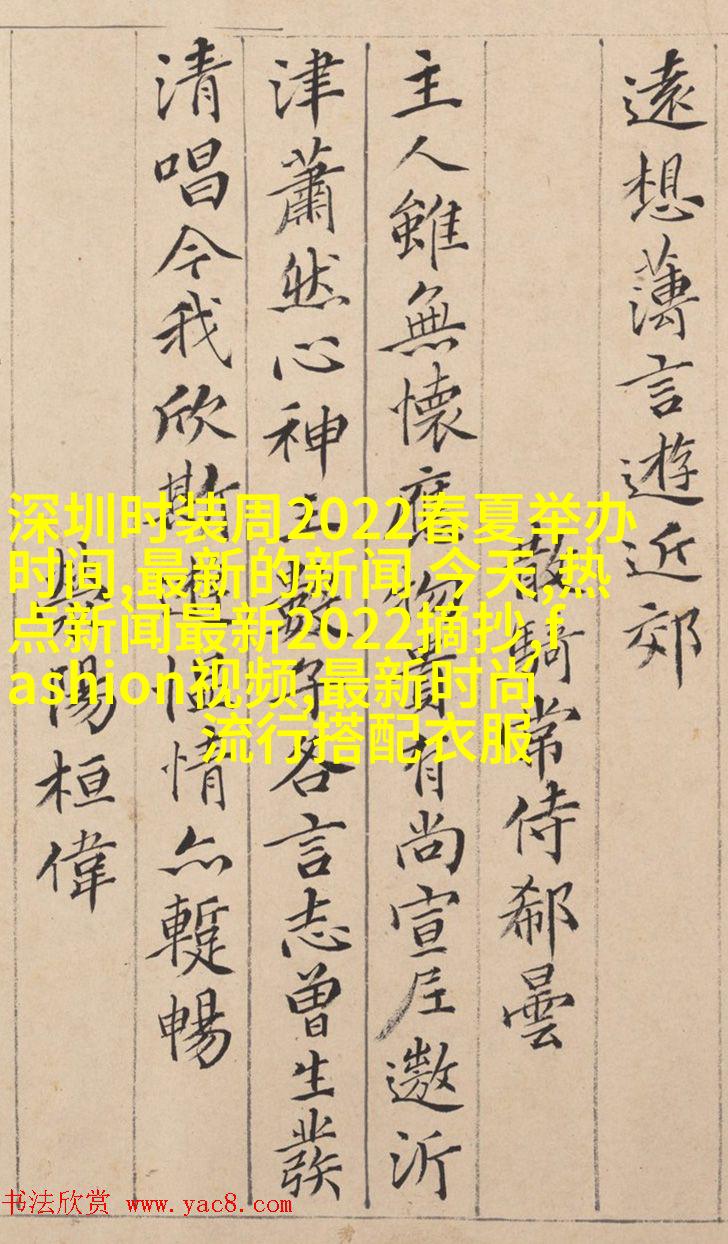 遠想薄言遊近郊
散騎常侍郗曇
主人雖無懷應物貴有尚宣尼遨沂
津蕭然心神王數子各言志曾生發
清唱今我欣斯遊慍情亦蹔暢
滎陽桓偉
深圳时装周2022春夏举办
时间,最新的新闻,今天,热
点新闻最新2022摘抄,f
ashion视频,最新时尚
流行搭配衣服
书法欣赏 www.yac8.com